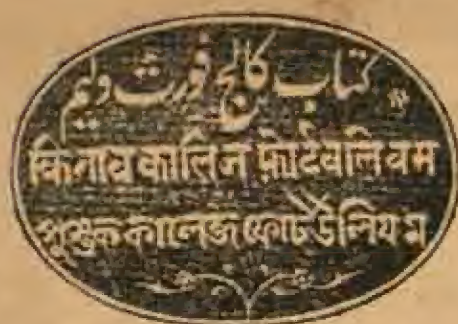 كتاب كالج فورت وليم
किताब कालिज फ़ोर्टवलियम
পুস্তক কালেজ ফোর্ট উলিয়ম